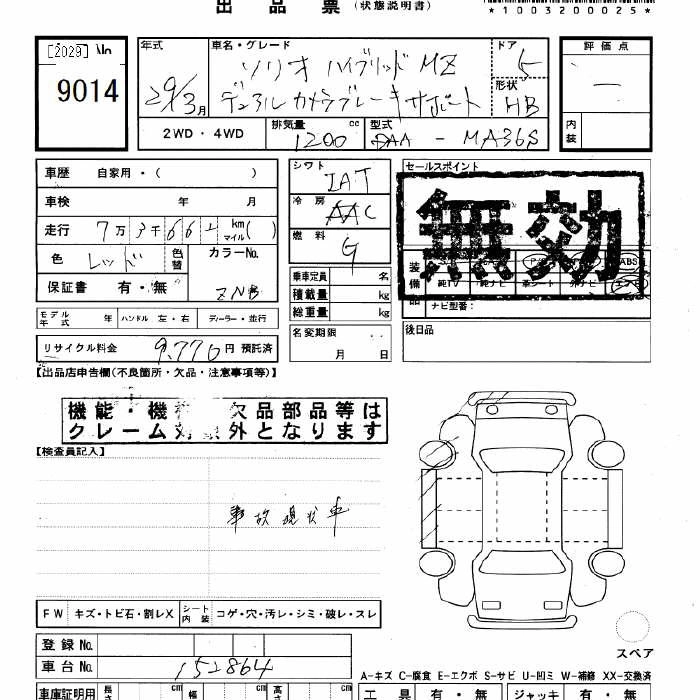 出品票 (状態説明書)
*1003200025*
[2029]
9014
年式 車名・グレード ドア
ソリオ ハイブリッド MZ 5
29/3月 デュアルカメラブレーキサポート 形状 HB
2WD・4WD 排気量 1200 cc 型式 DAA - MA36S
評価点
内装
車歴 自家用・( )
車検 年 月
走行 7万3千66 km マイル( )
色 レッド 色替 カラーNo.
保証書 有・無 ZNB
シフト IAT
冷房 AAC
燃料 G
乗車定員 名
積載量 kg
総重量 kg
セールスポイント
無効
装備品 ABS
純TV 純ナビ 革シート
ナビ型番:
モデル年式 年 ハンドル 左・右 ディーラー・並行
名変期限 月 日
後日品
リサイクル料金 9,770 円 預託済
【出品店申告欄(不良箇所・欠品・注意事項等)】
機能・機 欠品部品等は
クレーム対象外となります
【検査員記入】
事故現状車
FW キズ・トビ石・割レX シート内装 コゲ・穴・汚レ・シミ・破レ・スレ
スペア
登録No.
車台No. 152864
A-キズ C-腐食 E-エクボ S-サビ U-凹ミ W-補修 XX-交換済
車庫証明用 長さ cm 幅 cm 高さ cm 工具 有・無 ジャッキ 有・無